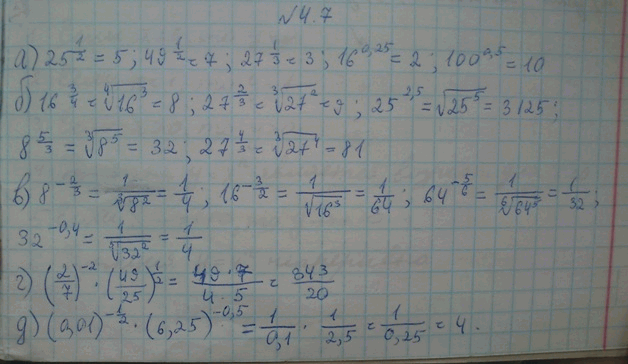 №4.7
а) 25^(1/2) = 5 ; 49^(1/2) = 7 ; 27^(1/3) = 3 ; 16^(0,25) = 2 ; 100^(0,5) = 10
б) 16^(3/4) = ⁴√16³ = 8 ; 27^(2/3) = ³√27² = 9 ; 25^(2,5) = √25⁵ = 3125 ;
8^(5/3) = ³√8⁵ = 32 ; 27^(4/3) = ³√27⁴ = 81
в) 8^(-2/3) = 1/³√8² = 1/4 ; 16^(-3/2) = 1/√16³ = 1/64 ; 64^(-5/6) = 1/⁶√64⁵ = 1/32 ;
32^(-0,4) = 1/⁵√32² = 1/4
г) (2/7)^(-2) · (49/25)^(1/2) = 49·7/4·5 = 343/20
д) (0,01)^(-1/2) · (6,25)^(-0,5) = 1/0,1 · 1/2,5 = 1/0,25 = 4 .